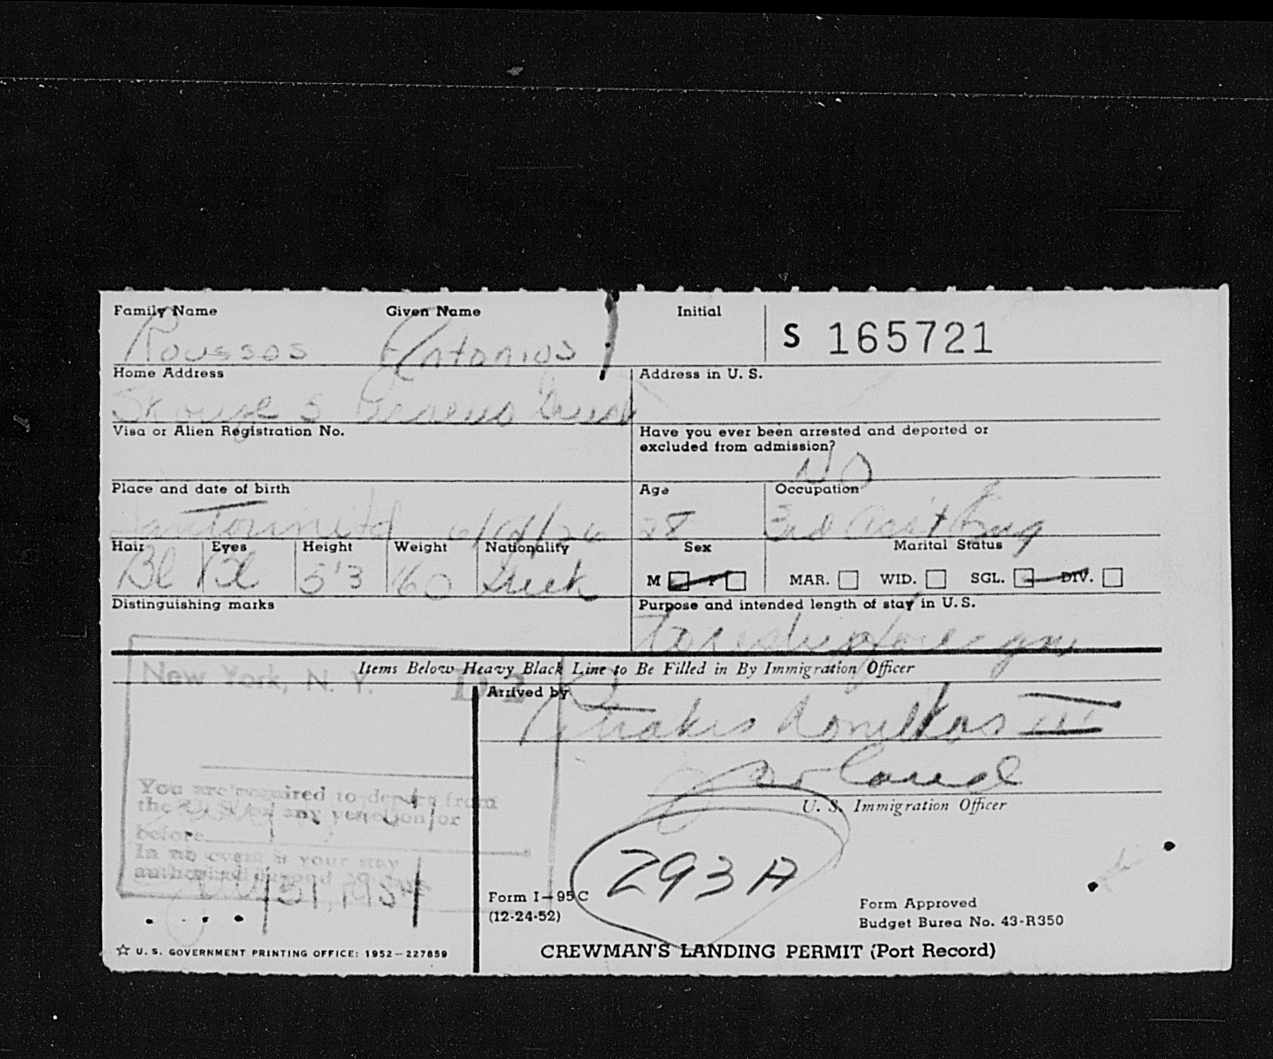 Family Name Given Name Initial
S 165721
Roussos Antonios
Home Address Address in U. S.
5
Visa or Alien Registration No. Have you ever been arrested and deported or
excluded from admission?
NO
Place and date of birth Age Occupation
28 3rd
Hair Eyes Height Weight Nationality Sex Marital Status
Bl Bl 5'3 160 Greek M F MAR. WID. SGL. DIV.
Distinguishing marks Purpose and intended length of stay in U. S.
Items Below Heavy Black Line to Be Filled in By Immigration Officer
New York, N. Y.
Arrived by
III
U. S. Immigration Officer
You are required to depart from
the U. S. by any vessel on or
before
In no event is your stay
authorized beyond 29 days
293A
Form I-95C
(12-24-52)
Form Approved
Budget Burea No. 43-R350
☆ U. S. GOVERNMENT PRINTING OFFICE: 1952—227859
CREWMAN'S LANDING PERMIT (Port Record)